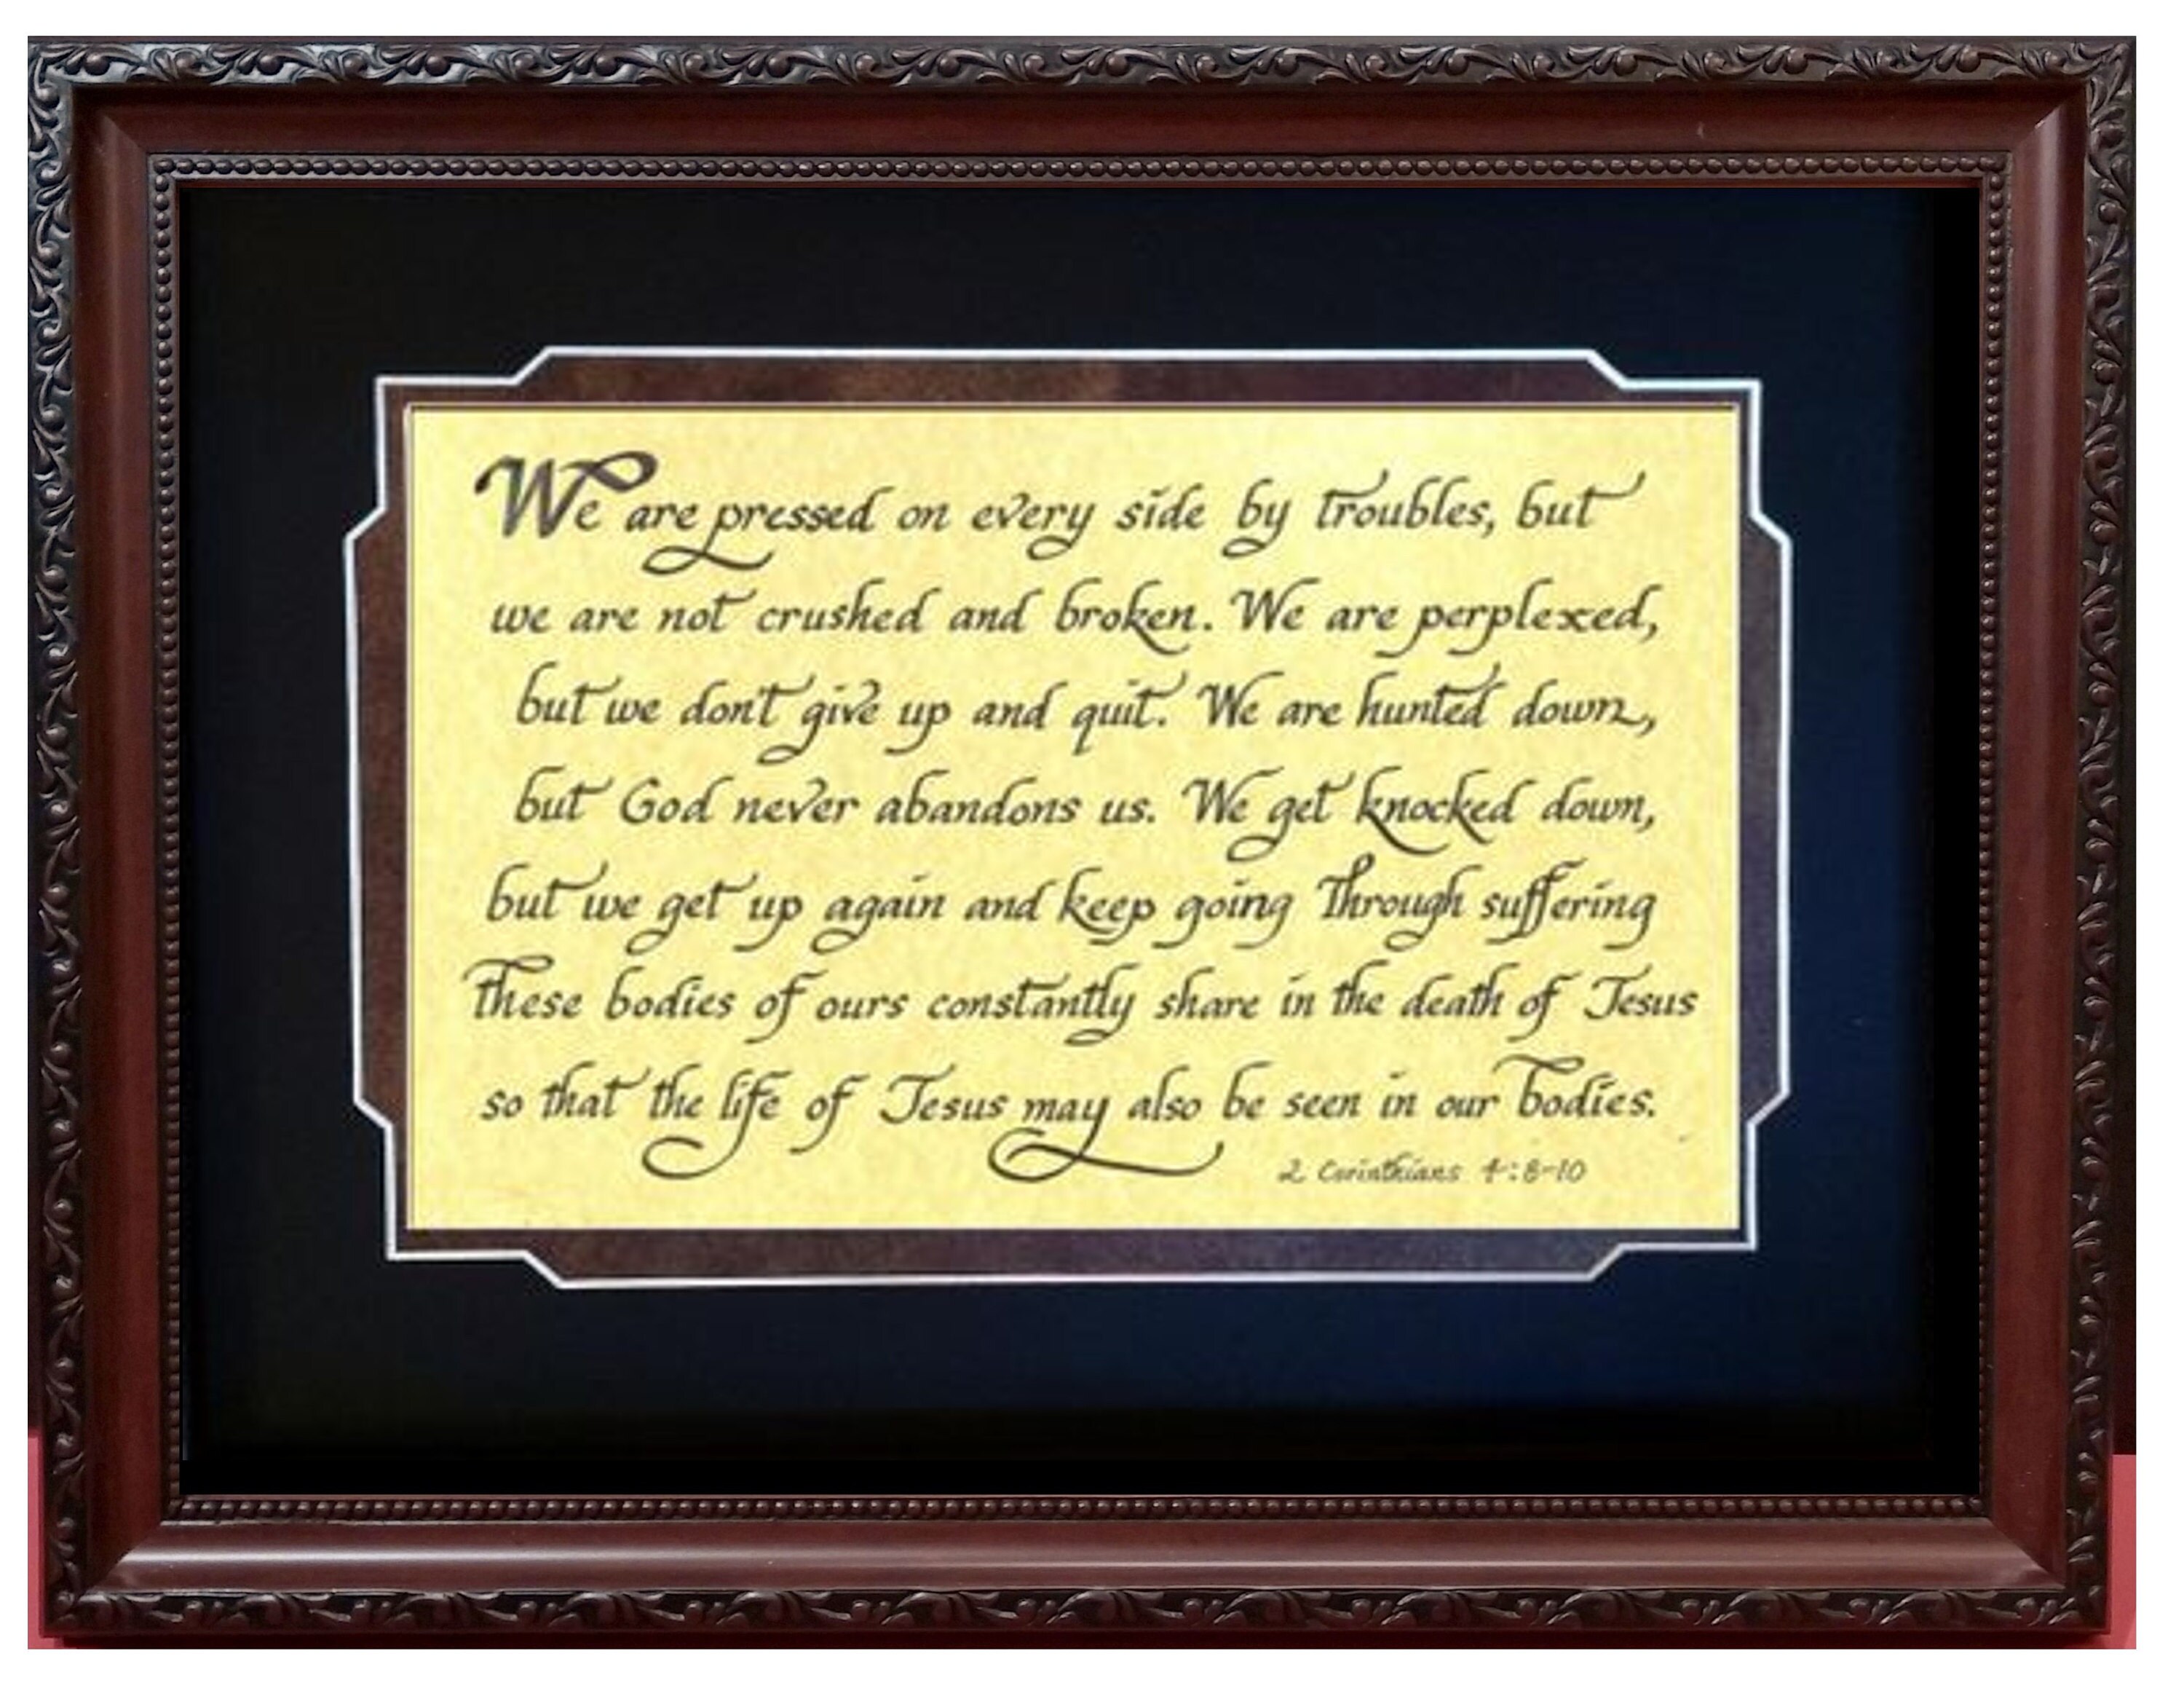 We are pressed on every side by troubles, but
we are not crushed and broken. We are perplexed,
but we don't give up and quit. We are hunted down,
but God never abandons us. We get knocked down,
but we get up again and keep going through suffering
these bodies of ours constantly share in the death of Jesus
so that the life of Jesus may also be seen in our bodies.
2 Corinthians 4:8-10